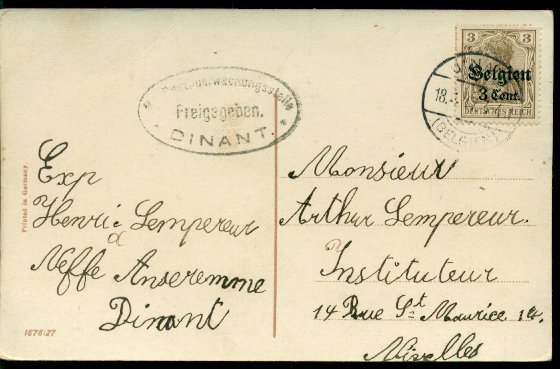 3 3
Belgien
3 Cent.
DEUTSCHES REICH
18.
(BELGIEN)
Freigegeben.
* DINANT. *
Printed in Germany
Exp
Henri Lempereur
à
Neffe Anseremme
Dinant
1676/27
Monsieur
Arthur Lempereur.
Instituteur
14 Rue St Maurice 14.
Nivelles